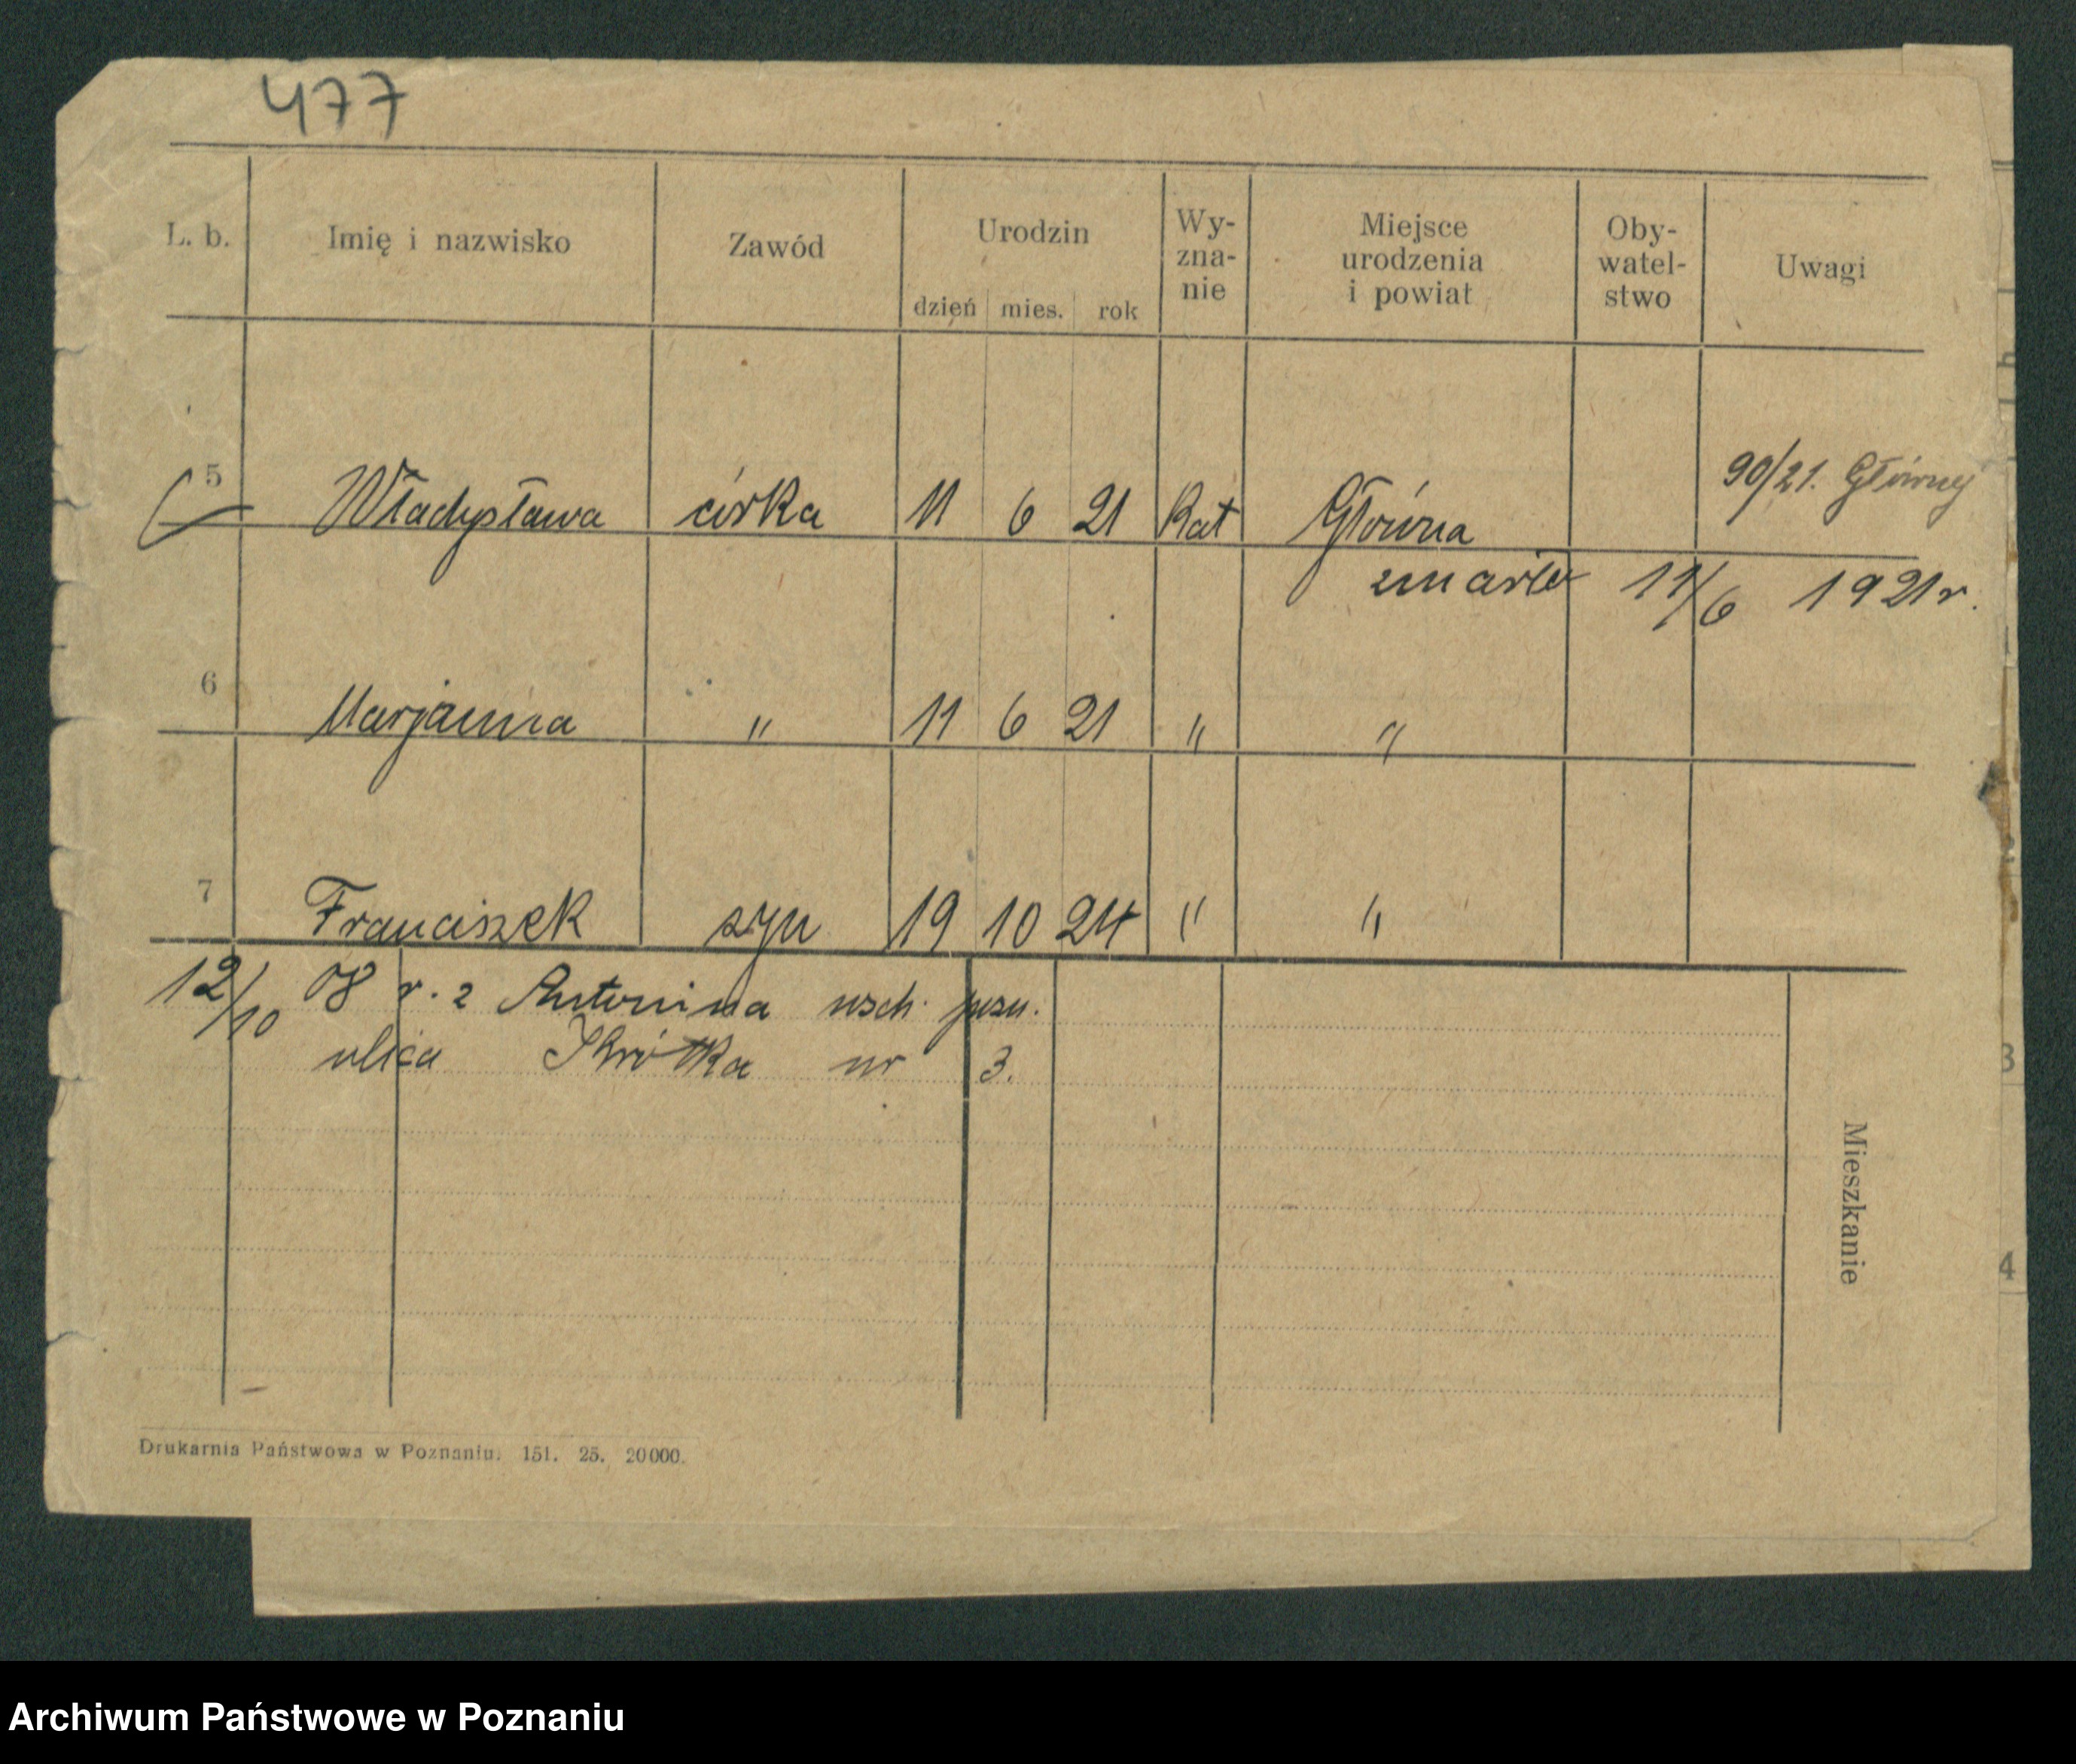 477
L. b. Imię i nazwisko Zawód Urodzin Wy- Miejsce Oby- Uwagi
zna- urodzenia watel-
dzień mies. rok nie i powiat stwo
5 Władysława córka 11 6 21 Kat Główna 90/21. Głównej
zmarła 11/6 1921 r.
6 Marjanna " 11 6 21 " "
7 Franciszek syn 19 10 24 " "
12/10 08 r. z Antonina wsch. pozn.
ulica Krótka nr 3.
Mieszkanie
3
4
Drukarnia Państwowa w Poznaniu. 151. 25. 20000.
Archiwum Państwowe w Poznaniu